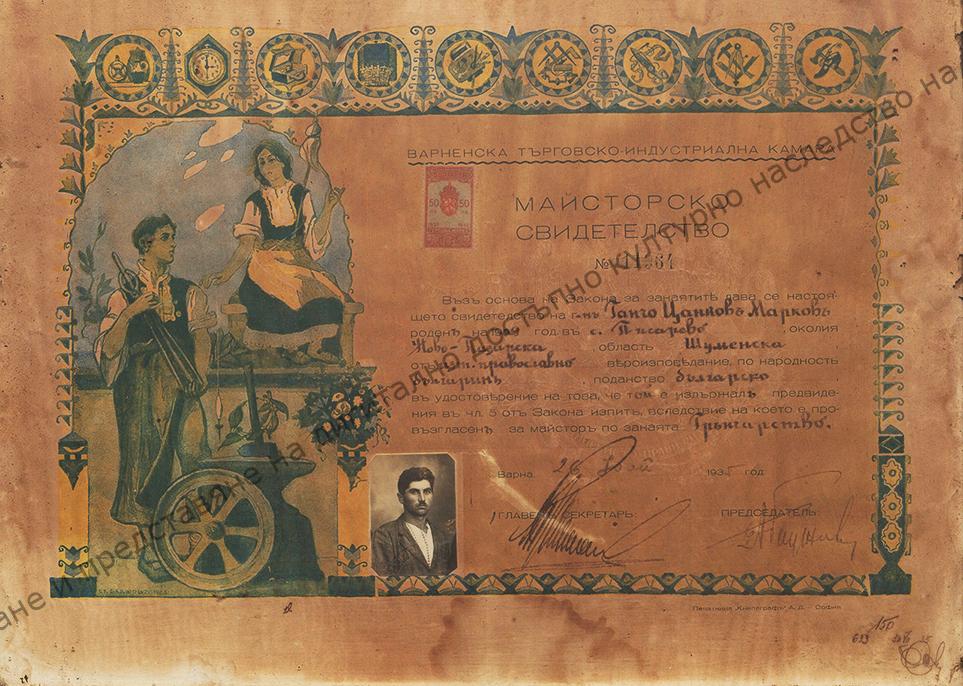 ВАРНЕНСКА ТЪРГОВСКО-ИНДУСТРИАЛНА КАМАРА
50 50
МАЙСТОРСКО
СВИДЕТЕЛСТВО
№
Възъ основа на Закона за занаятитѣ дава се настоя-
щето свидетелство на г-нъ Ганчо Цанковъ Марковъ
роденъ на год. въ с. Писарево, околия
Ново-Пазарска, область Шуменска
отъ изт. православно вѣроизповѣдание, по народность
българинъ, поданство българско,
въ удостовѣрение на това, че той е издържалъ предвиде-
ния въ чл. 5 отъ Закона изпитъ, вследствие на което е про-
възгласенъ за майсторъ по занаята Грънчарство.
Варна, 26 1935 год.
ГЛАВЕНЪ СЕКРЕТАРЬ: ПРЕДСЕДАТЕЛЬ:
Печатница „Книпеграфъ“ А. Д. - София
150
693
ане и представяне на дигитално достъпно културно наследство на